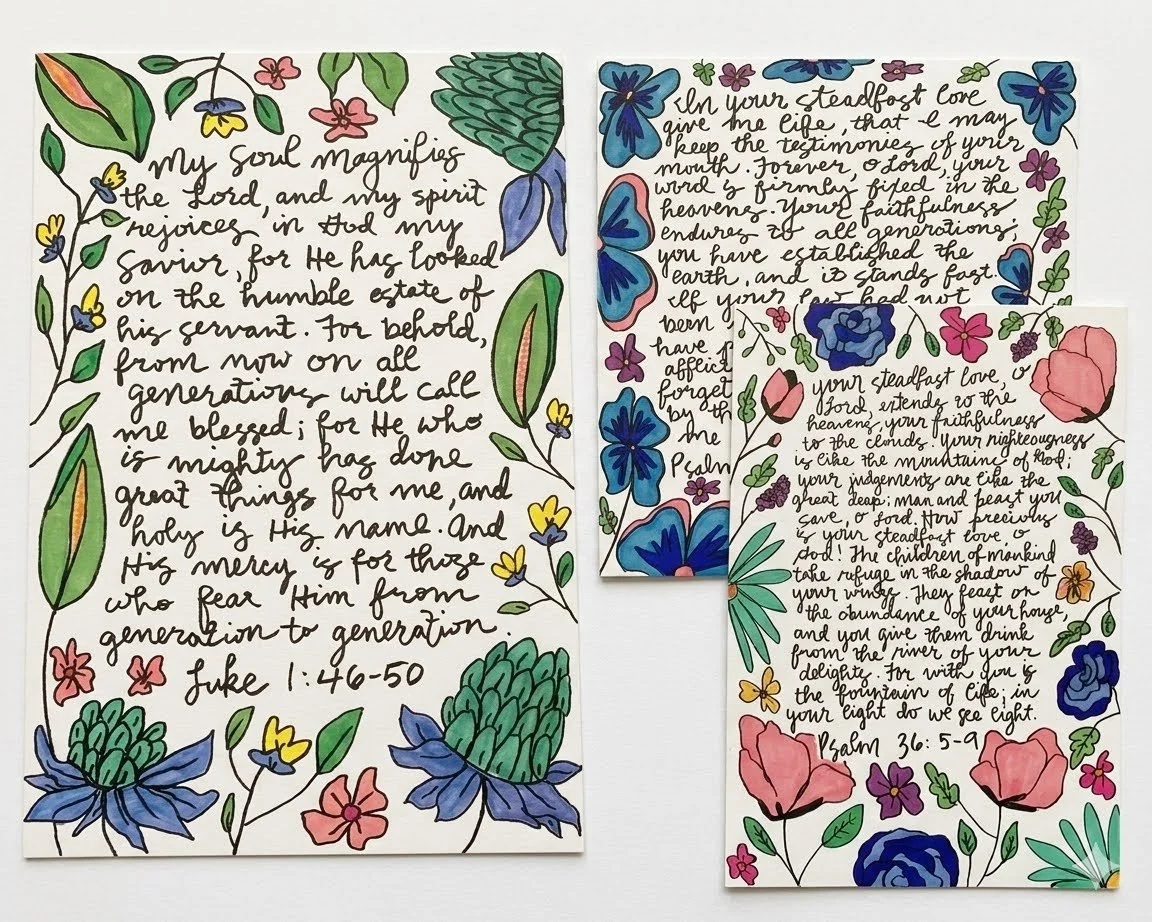 My Soul magnifies
the Lord, and my spirit
rejoices in God my
Savior, for He has looked
on the humble estate of
his servant. For behold,
from now on all
generations will call
me blessed; for He who
is mighty has done
great things for me, and
holy is His name. And
His mercy is for those
who fear Him from
generation to generation.
Luke 1:46-50
In your steadfast love
give me life, that I may
keep the testimonies of your
mouth. Forever, O Lord, your
word is firmly fixed in the
heavens. Your faithfulness
endures to all generations;
you have established the
earth, and it stands fast.
If your law had not
been
have
afflict
forget
by th
me
Psalm
your steadfast love, O
Lord, extends to the
heavens, your faithfulness
to the clouds. Your righteousness
is like the mountains of God;
your judgements are like the
great deep; man and beast you
save, O Lord. How precious
is your steadfast love, O
God! The children of mankind
take refuge in the shadow of
your wings. They feast on
the abundance of your house,
and you give them drink
from the river of your
delights. For with you is
the fountain of life; in
your light do we see light.
Psalm 36:5-9